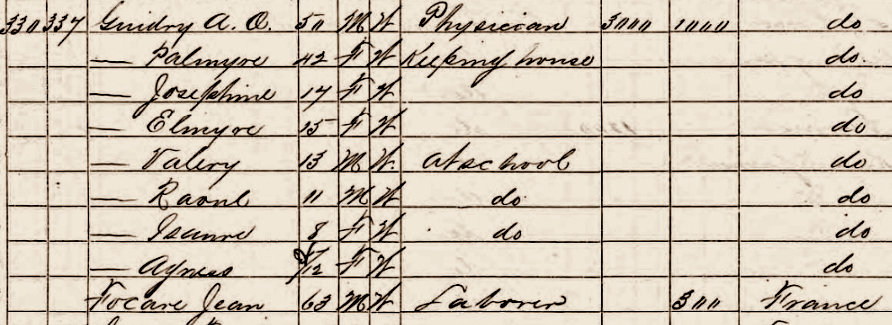 330 337 Guidry A. O. 50 M W Physician 3000 1000 do
— Palmyre 42 F W Keeping house do
— Josephine 17 F W do
— Elmyre 15 F W do
— Valery 13 M W At school do
— Raoul 11 M W do do
— Isaure 8 F W do do
— Agness /12 F W do
Focare Jean 63 M W Laborer 300 France